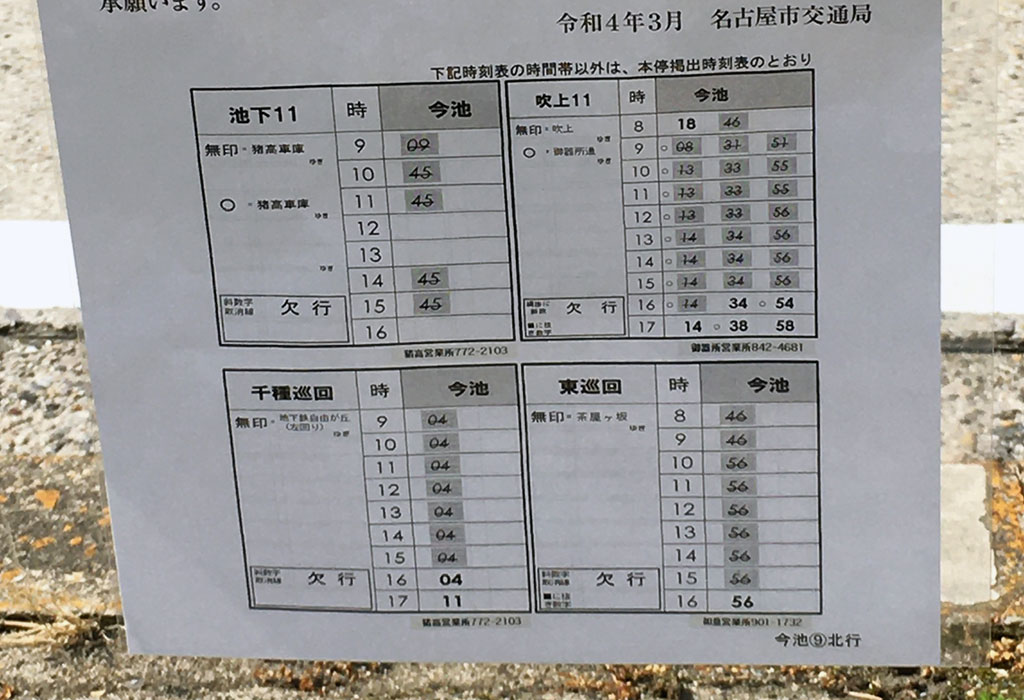 承願います。
令和4年3月　名古屋市交通局
下記時刻表の時間帯以外は、本停掲出時刻表のとおり
池下11 時 今池
無印=猪高車庫 ゆき
○=猪高車庫 ゆき
ゆき
9 09
10 45
11 45
12
13
14 45
15 45
16
斜数字
取消線 欠行
猪高営業所772-2103
吹上11 時 今池
無印=吹上 ゆき
○=御器所通 ゆき
8 18 46
9 ○08 31 51
10 ○13 33 55
11 ○13 33 55
12 ○13 33 56
13 ○14 34 56
14 ○14 34 56
15 ○14 34 56
16 ○14 34 ○54
17 14 ○38 58
欠行
御器所営業所842-4681
千種巡回 時 今池
無印=地下鉄自由が丘
(左回り) ゆき
9 04
10 04
11 04
12 04
13 04
14 04
15 04
16 04
17 11
斜数字
取消線 欠行
猪高営業所772-2103
東巡回 時 今池
無印=茶屋ヶ坂 ゆき
8 46
9 46
10 56
11 56
12 56
13 56
14 56
15 56
16 56
斜数字
取消線 欠行
営業所901-1732
今池⑨北行